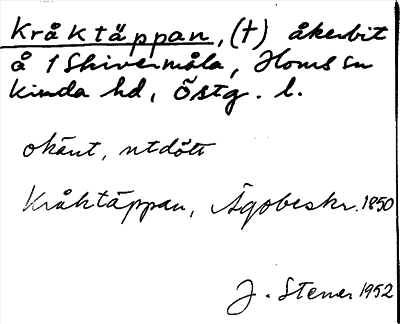 Kråktäppan, (†) åkerbit
å 1 Skivermåla, Horns sn
Kinda hd, Östg. l.
okänt, utdött
Kråktäppan, Ägobeskr. 1850
J. Stener 1952